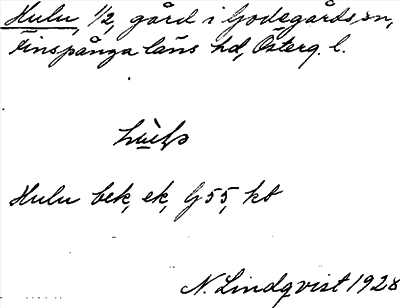 Hulu, 1/2, gård i Godegårds sn,
Finspånga läns hd, Österg. l.
Hulu bek, ek, G 55, kb
N. Lindqvist 1928